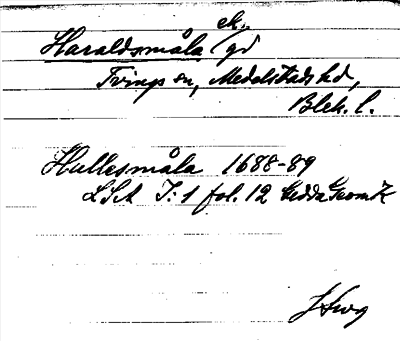 Haraldsmåla ek. / gd
Tvings sn, Medelstads hd,
Blek. l.
Hallesmåla 1688-89
LSA I:1 fol. 12 Gedda Geom K